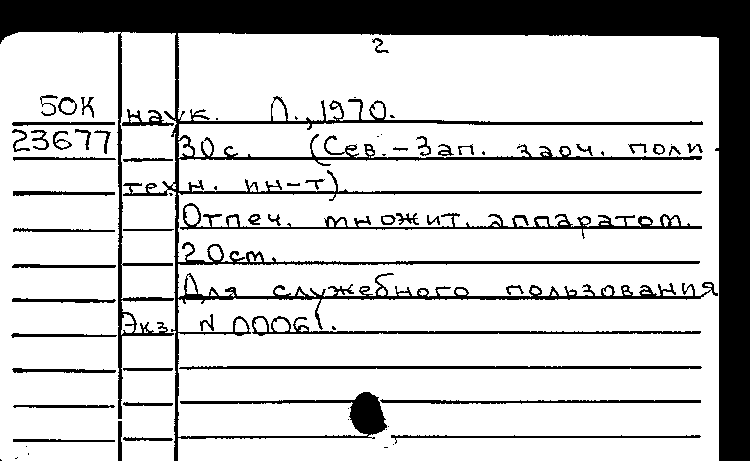 2
50К наук. Л., 1970.
23677 30с. (Сев.-Зап. заоч. поли-
техн. ин-т).
Отпеч. множит. аппаратом.
20см.
Для служебного пользования
Экз. N 00061.